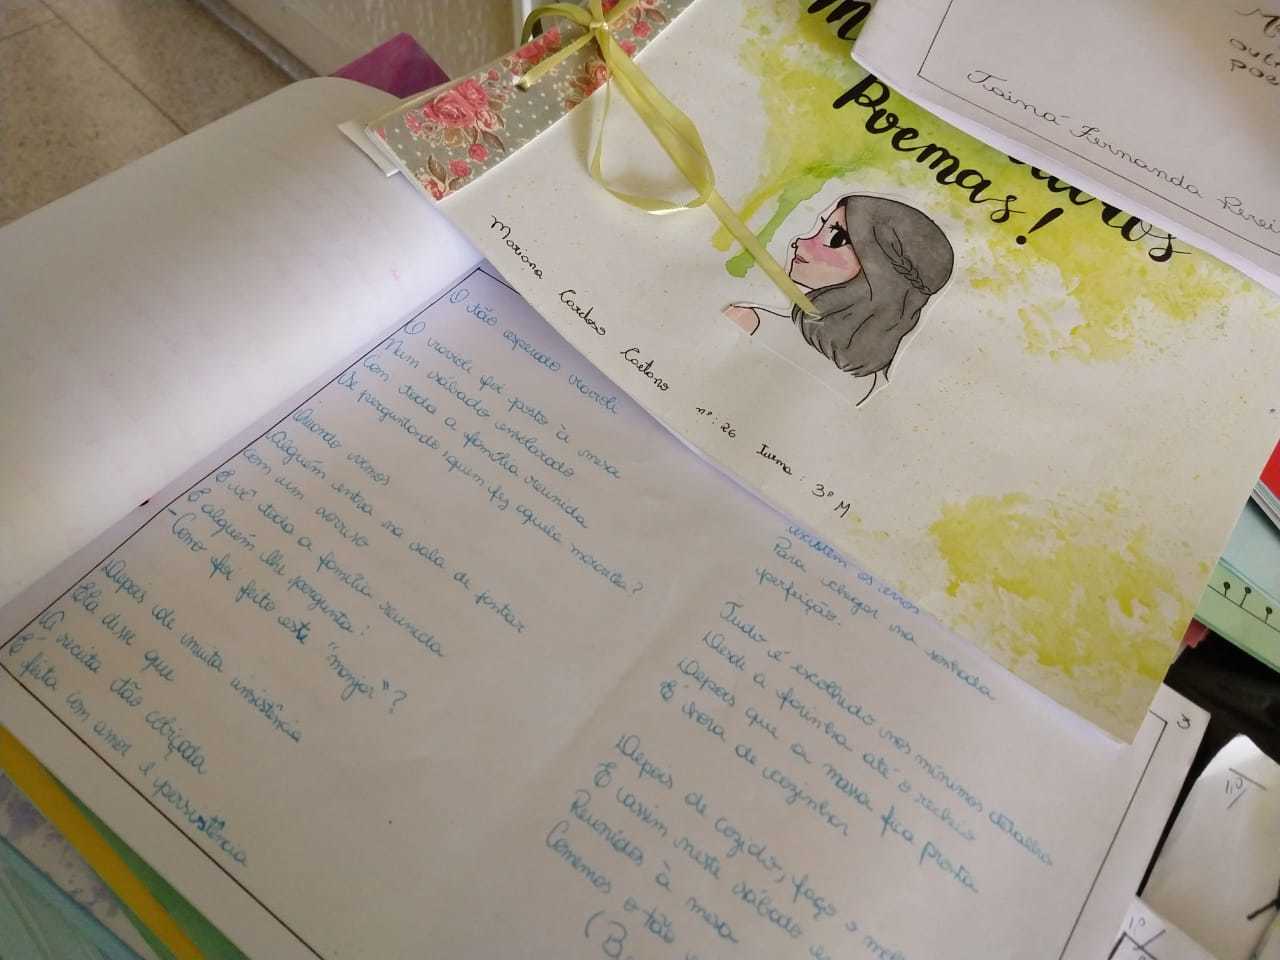 Poemas!
Tainá Fernanda
Mariana Cardoso Caetano nº: 26 Turma: 3º M
O tão esperado ravioli
O ravioli foi posto à mesa
Num sábado ensolarado
Com toda a família reunida
Se perguntando, quem fez aquela maravilha?
Quando vimos
Alguém entra na sala de jantar
Com um sorriso
E vê toda a família reunida
E alguém lhe pergunta:
-Como foi feito este "manjar"?
Depois de muita insistência
Ela disse que
A receita tão cobiçada
É feita com amor e persistência
existem os erros
Para chegar na sonhada
perfeição.
Tudo é escolhido nos mínimos detalhes
Desde a farinha até o recheio
Depois que a massa fica pronta
É hora de cozinhar
Depois de cozido, faço o
E assim neste sábado
Reunidos à mesa
Comemos o tão